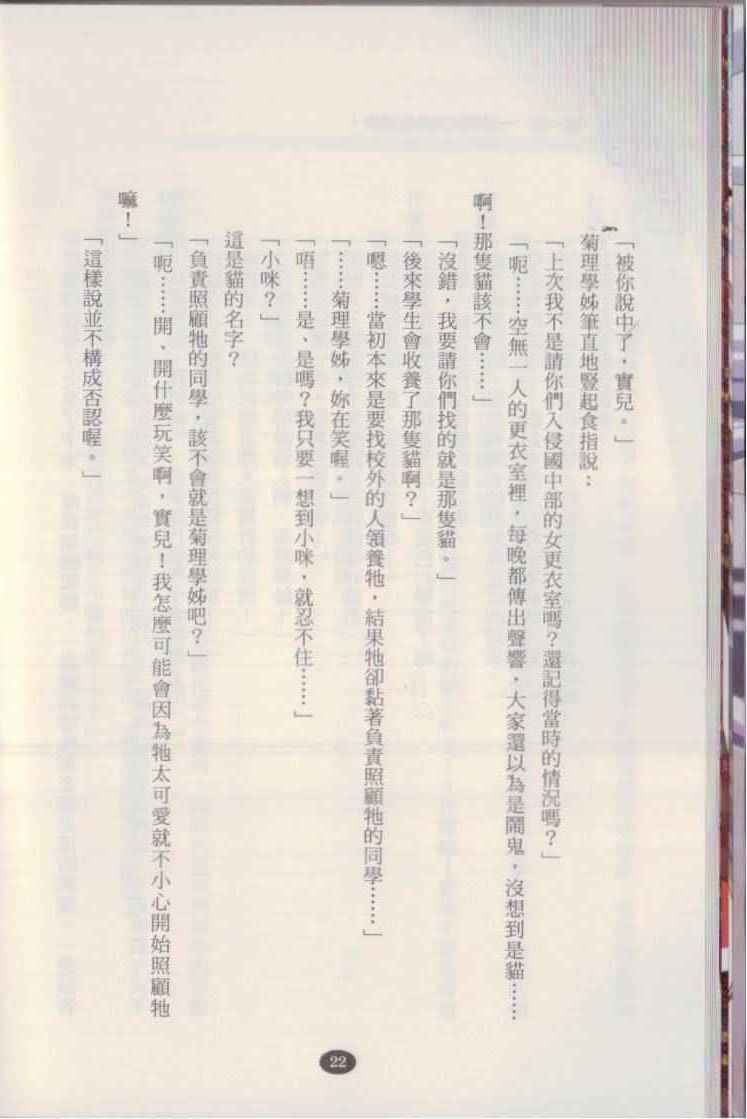 「被你說中了，實兒。」
菊理學姊筆直地豎起食指說：
「上次我不是請你們入侵國中部的女更衣室嗎？還記得當時的情況嗎？」
「呃……空無一人的更衣室裡，每晚都傳出聲響，大家還以為是鬧鬼，沒想到是貓……
啊！那隻貓該不會……」
「沒錯，我要請你們找的就是那隻貓。」
「後來學生會收養了那隻貓啊？」
「嗯……當初本來是要找校外的人領養牠，結果牠卻黏著負責照顧牠的同學……」
「……菊理學姊，妳在笑喔。」
「唔……是、是嗎？我只要一想到小咪，就忍不住……」
「小咪？」
這是貓的名字？
「負責照顧牠的同學，該不會就是菊理學姊吧？」
「呃……開、開什麼玩笑啊，實兒！我怎麼可能會因為牠太可愛就不小心開始照顧牠
嘛！」
「這樣說並不構成否認喔。」
22